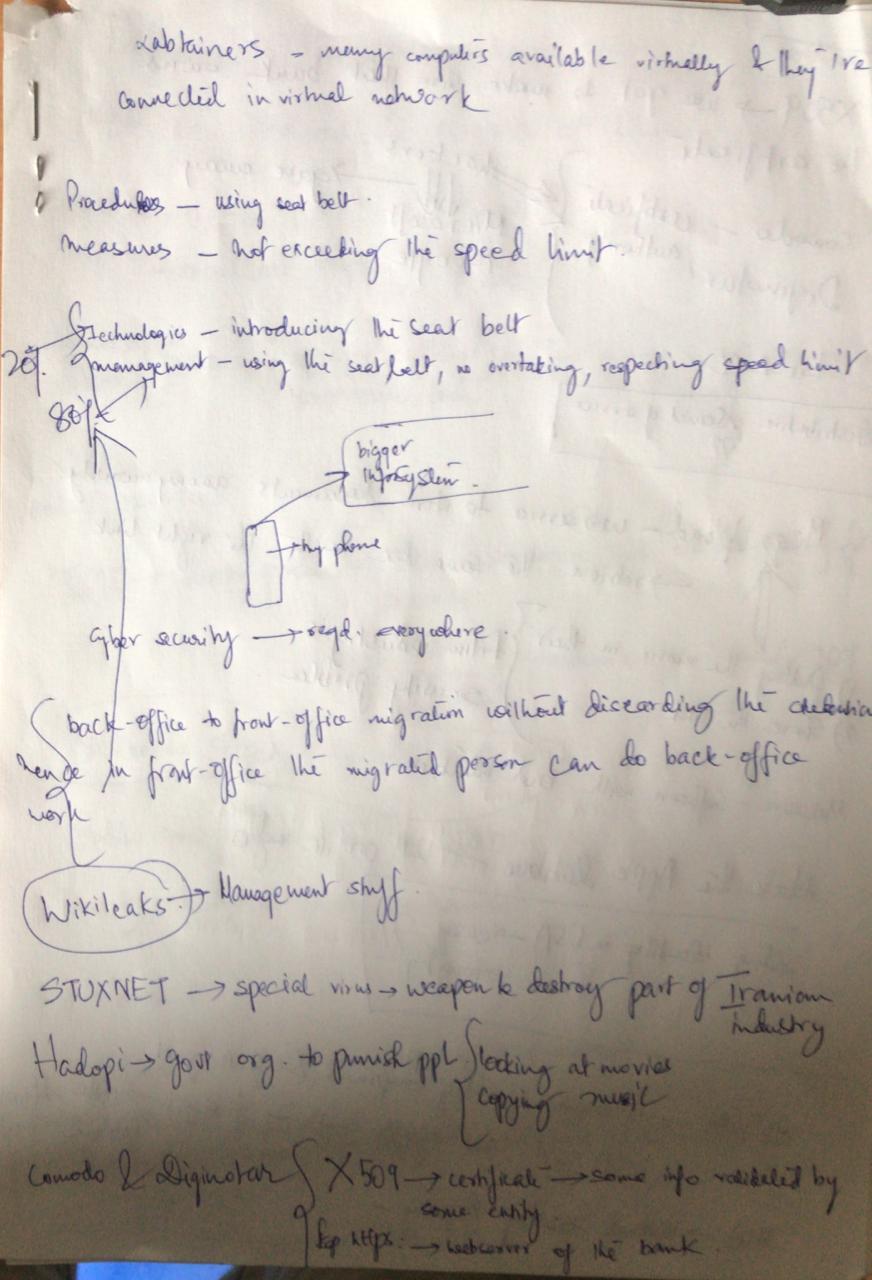 Labtainers – many computers available virtually & they're
connected in virtual network
Procedures – using seat belt.
Measures – not exceeding the speed limit.
Technologies – introducing the seat belt
20%. management – using the seat belt, no overtaking, respecting speed limit
80%
bigger
infosystem.
→ my phone
Cyber security → reqd. everywhere.
back-office to front-office migration without discarding the
hence in front-office the migrated person can do back-office
work
Wikileaks. → Management stuff.
STUXNET → special virus → weapon to destroy part of Iranian
industry
Hadopi → govt org. to punish ppl { looking at movies
copying music
Comodo & Diginotar { X509 → certificate → some info validated by
some entity
for https: → webserver of the bank.